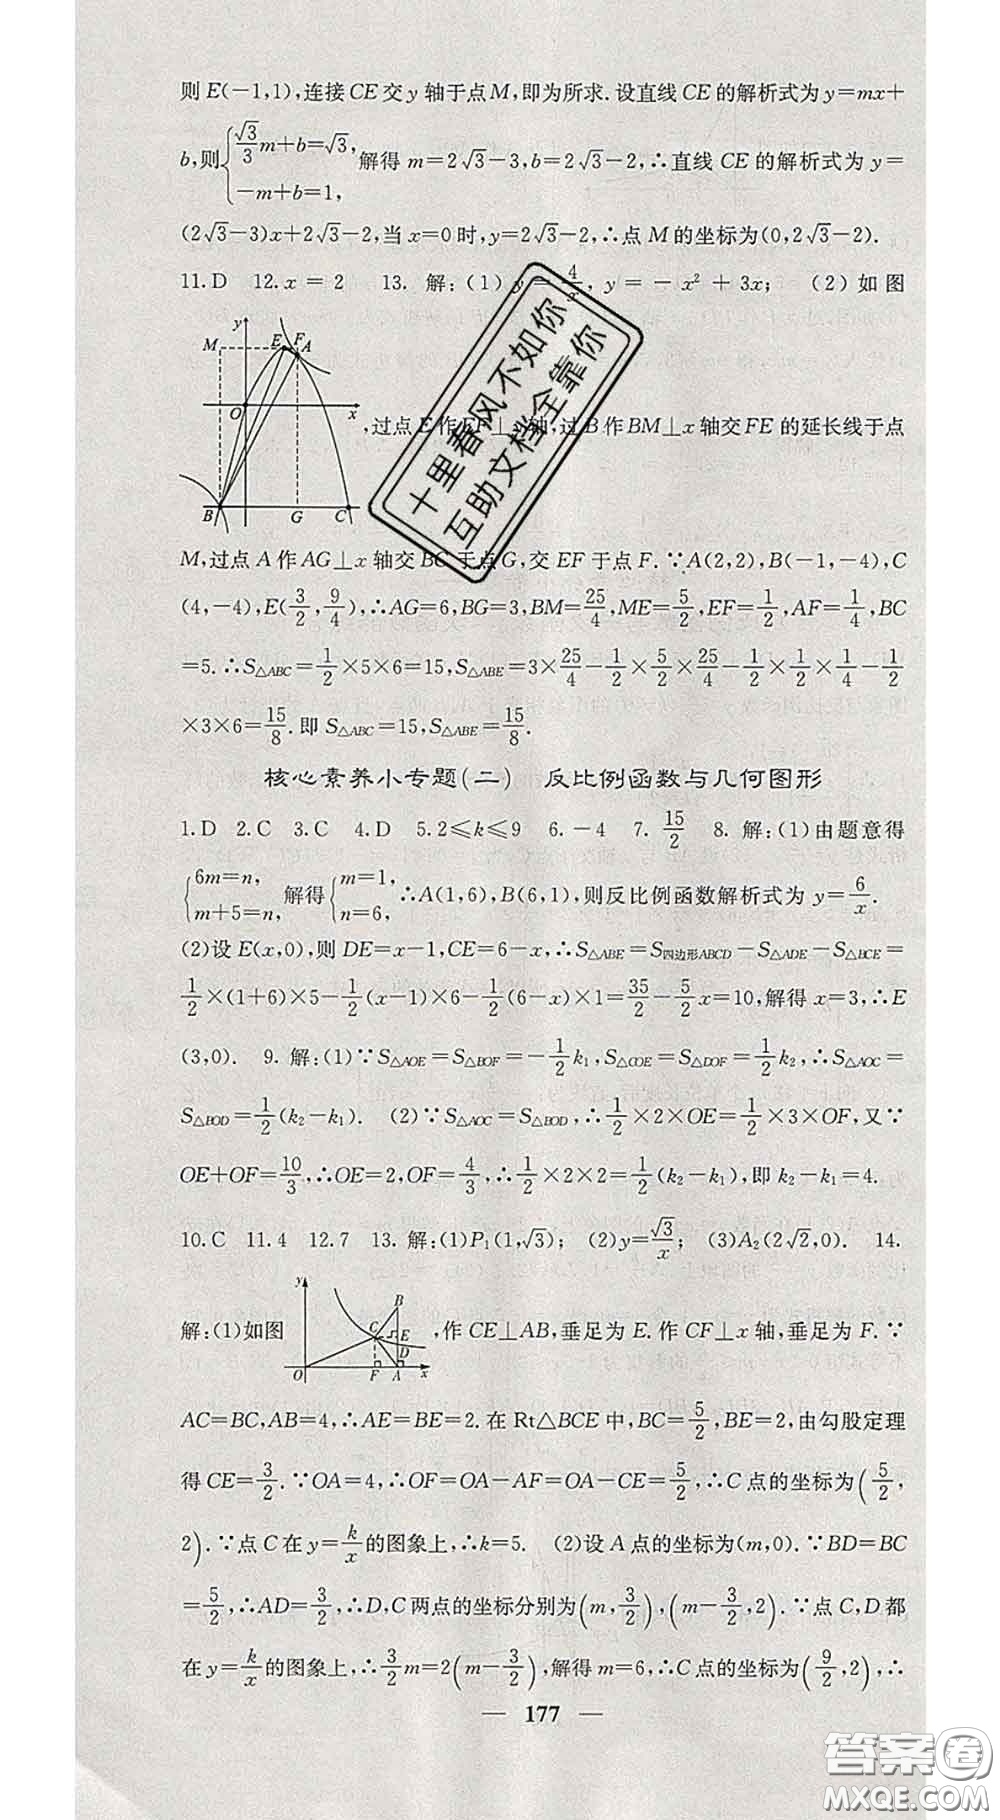 则 E(-1,1),连接 CE 交 y 轴于点 M,即为所求.设直线 CE 的解析式为 y=mx+
b,则{√3/3 m+b=√3, -m+b=1, 解得 m=2√3-3,b=2√3-2,∴直线 CE 的解析式为 y=
(2√3-3)x+2√3-2,当 x=0 时,y=2√3-2,∴点 M 的坐标为(0,2√3-2).
11.D 12.x=2 13. 解:(1)y=4/x, y=-x²+3x; (2)如图
y M E F A O x B G C
,过点 E 作 EF⊥ 轴,过 B 作 BM⊥x 轴交 FE 的延长线于点
M,过点 A 作 AG⊥x 轴交 BC 于点 G,交 EF 于点 F.∵A(2,2),B(-1,-4),C
(4,-4),E(3/2,9/4),∴AG=6,BG=3,BM=25/4,ME=5/2,EF=1/2,AF=1/4,BC
=5.∴S△ABC=1/2×5×6=15,S△ABE=3×25/4-1/2×5/2×25/4-1/2×1/2×1/4-1/2
×3×6=15/8.即 S△ABC=15,S△ABE=15/8.
核心素养小专题(二) 反比例函数与几何图形
1.D 2.C 3.C 4.D 5.2≤k≤9 6.-4 7.15/2 8. 解:(1)由题意得
{6m=n, m+5=n, 解得{m=1, n=6, ∴A(1,6),B(6,1),则反比例函数解析式为 y=6/x.
(2)设 E(x,0),则 DE=x-1,CE=6-x,∴S△ABE=S四边形ABCD-S△ADE-S△BCE=
1/2×(1+6)×5-1/2(x-1)×6-1/2(6-x)×1=35/2-5/2x=10,解得 x=3,∴E
(3,0). 9. 解:(1)∵S△AOE=S△BOF=-1/2k₁,S△COE=S△DOF=1/2k₂,∴S△AOC=
S△BOD=1/2(k₂-k₁). (2)∵S△AOC=S△BOD,∴1/2×2×OE=1/2×3×OF,又∵
OE+OF=10/3,∴OE=2,OF=4/3,∴1/2×2×2=1/2(k₂-k₁),即 k₂-k₁=4.
10.C 11.4 12.7 13. 解:(1)P₁(1,√3); (2)y=√3/x; (3)A₂(2√2,0). 14.
解:(1)如图
y B C E D O F A x
,作 CE⊥AB,垂足为 E.作 CF⊥x 轴,垂足为 F.∵
AC=BC,AB=4,∴AE=BE=2.在 Rt△BCE 中,BC=5/2,BE=2,由勾股定理
得 CE=3/2.∵OA=4,∴OF=OA-AF=OA-CE=5/2,∴C 点的坐标为(5/2,
2).∵点 C 在 y=k/x 的图象上,∴k=5. (2)设 A 点的坐标为(m,0).∵BD=BC
=5/2,∴AD=3/2,∴D,C 两点的坐标分别为(m,3/2),(m-3/2,2).∵点 C,D 都
在 y=k/x 的图象上,∴3/2m=2(m-3/2),解得 m=6,∴C 点的坐标为(9/2,2),∴
— 177 —
十里春风不如你
互助文档全靠你
答案圈
MXQE.COM